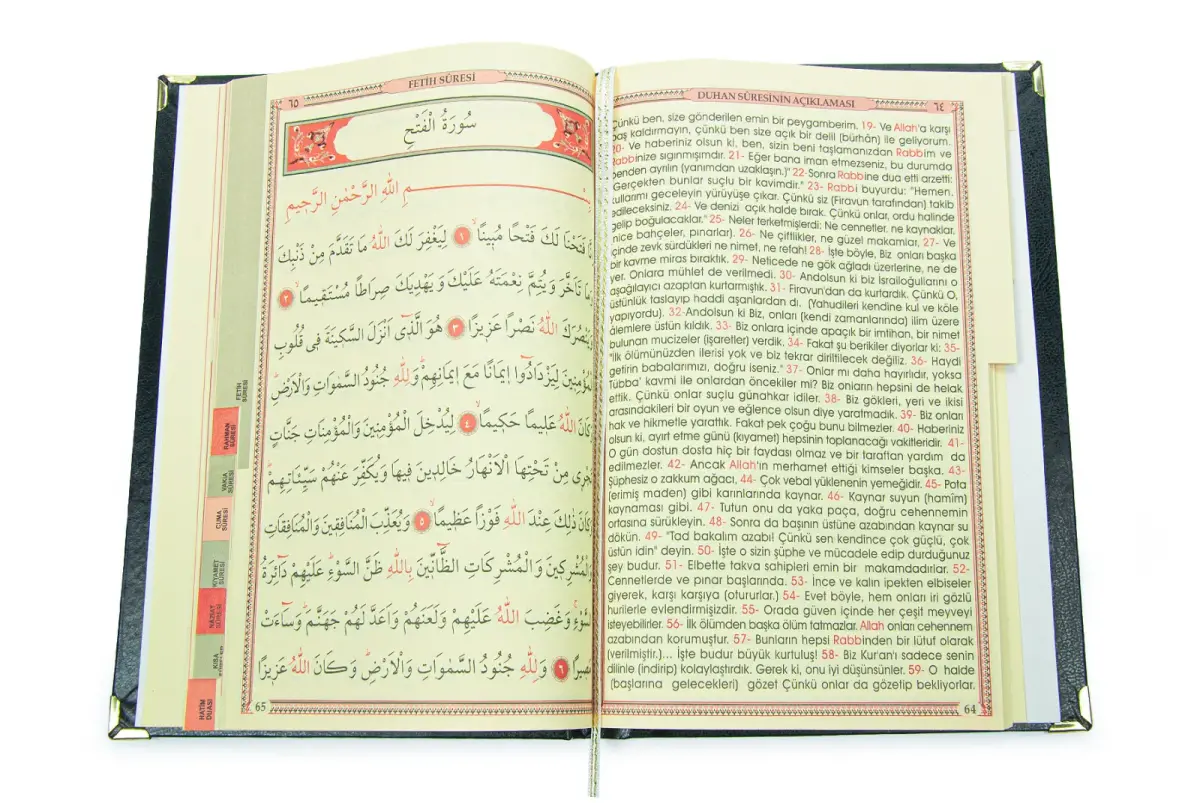 DUHAN SÛRESİNİN AÇIKLAMASI
٦٤
Çünkü ben, size gönderilen emin bir peygamberim. 19- Ve Allah'a karşı
baş kaldırmayın, çünkü ben size açık bir delil (bürhân) ile geliyorum.
20- Ve haberiniz olsun ki, ben, sizin beni taşlamanızdan Rabbim ve
Rabbinize sığınmışımdır. 21- Eğer bana iman etmezseniz, bu durumda
benden ayrılın (yanımdan uzaklaşın.)" 22-Sonra Rabbine dua etti arzetti:
"Gerçekten bunlar suçlu bir kavimdir." 23- Rabbi buyurdu: "Hemen,
kullarımı geceleyin yürüyüşe çıkar. Çünkü siz (Firavun tarafından) takib
edileceksiniz. 24- Ve denizi açık halde bırak. Çünkü onlar, ordu halinde
gelip boğulacaklar." 25- Neler terketmişlerdi: Ne cennetler, ne kaynaklar,
(nice bahçeler, pınarlar). 26- Ne çiftlikler, ne güzel makamlar, 27- Ve
içinde zevk sürdükleri ne nimet, ne refah! 28- İşte böyle, Biz onları başka
bir kavme miras bıraktık. 29- Neticede ne gök ağladı üzerlerine, ne de
yer. Onlara mühlet de verilmedi. 30- Andolsun ki biz İsrailoğullarını o
aşağılayıcı azaptan kurtarmıştık. 31- Firavun'dan da kurtardık. Çünkü O,
üstünlük taslayıp haddi aşanlardan dı. (Yahudileri kendine kul ve köle
yapıyordu). 32-Andolsun ki Biz, onları (kendi zamanlarında) ilim üzere
âlemlere üstün kıldık. 33- Biz onlara içinde apaçık bir imtihan, bir nimet
bulunan mucizeler (işaretler) verdik. 34- Fakat şu berikiler diyorlar ki: 35-
"İlk ölümünüzden ilerisi yok ve biz tekrar diriltilecek değiliz. 36- Haydi
getirin babalarımızı, doğru iseniz." 37- Onlar mı daha hayırlıdır, yoksa
Tubba' kavmi ile onlardan öncekiler mi? Biz onların hepsini de helak
ettik. Çünkü onlar suçlu günahkar idiler. 38- Biz gökleri, yeri ve ikisi
arasındakileri bir oyun ve eğlence olsun diye yaratmadık. 39- Biz onları
hak ve hikmetle yarattık. Fakat pek çoğu bunu bilmezler. 40- Haberiniz
olsun ki, ayırt etme günü (kıyamet) hepsinin toplanacağı vakitleridir. 41-
O gün dostun dosta hiç bir faydası olmaz ve bir taraftan yardım da
edilmezler. 42- Ancak Allah'ın merhamet ettiği kimseler başka. 43-
Şüphesiz o zakkum ağacı, 44- Çok vebal yüklenenin yemeğidir. 45- Pota
(erimiş maden) gibi karınlarında kaynar. 46- Kaynar suyun (hamîm)
kaynaması gibi. 47- Tutun onu da yaka paça, doğru cehennemin
ortasına sürükleyin. 48- Sonra da başının üstüne azabından kaynar su
dökün. 49- "Tad bakalım azabı! Çünkü sen kendince çok güçlü, çok
üstün idin" deyin. 50- İşte o sizin şüphe ve mücadele edip durduğunuz
şey budur. 51- Elbette takva sahipleri emin bir makamdadırlar. 52-
Cennetlerde ve pınar başlarında. 53- İnce ve kalın ipekten elbiseler
giyerek, karşı karşıya (otururlar.) 54- Evet böyle, hem onları iri gözlü
hurilerle evlendirmişizdir. 55- Orada güven içinde her çeşit meyveyi
isteyebilirler. 56- İlk ölümden başka ölüm tatmazlar. Allah onları cehennem
azabından korumuştur. 57- Bunların hepsi Rabbinden bir lütuf olarak
(verilmiştir.)... İşte budur büyük kurtuluş! 58- Biz Kur'an'ı sadece senin
dilinle (indirip) kolaylaştırdık. Gerek ki, onu iyi düşünsünler. 59- O halde
(başlarına gelecekleri) gözet Çünkü onlar da gözetip bekliyorlar.
64
٦٥
FETİH SÛRESİ
سُورَةُ الْفَتْحِ
بِسْمِ اللهِ الرَّحْمٰنِ الرَّحِيمِ
فَتَحْنَا لَكَ فَتْحًا مُبِينًا ۙ ١ لِيَغْفِرَ لَكَ اللهُ مَا تَقَدَّمَ مِنْ ذَنْبِكَ
تَاَخَّرَ وَيُتِمَّ نِعْمَتَهُ عَلَيْكَ وَيَهْدِيَكَ صِرَاطًا مُسْتَقِيمًا ۙ ٢
يَنْصُرَكَ اللهُ نَصْرًا عَزِيزًا ٣ هُوَ الَّذِٓى اَنْزَلَ السَّكِينَةَ فِى قُلُوبِ
الْمُؤْمِنِينَ لِيَزْدَادُٓوا اِيمَانًا مَعَ اِيمَانِهِمْ ۜ وَلِلّٰهِ جُنُودُ السَّمٰوَاتِ وَالْاَرْضِ ۜ
كَانَ اللهُ عَلِيمًا حَكِيمًا ۙ ٤ لِيُدْخِلَ الْمُؤْمِنِينَ وَالْمُؤْمِنَاتِ جَنَّاتٍ
تَجْرِى مِنْ تَحْتِهَا الْاَنْهَارُ خَالِدِينَ فِيهَا وَيُكَفِّرَ عَنْهُمْ سَيِّـَٔاتِهِمْ ۜ
كَانَ ذٰلِكَ عِنْدَ اللهِ فَوْزًا عَظِيمًا ۙ ٥ وَيُعَذِّبَ الْمُنَافِقِينَ وَالْمُنَافِقَاتِ
الْمُشْرِكِينَ وَالْمُشْرِكَاتِ الظَّٓانِّينَ بِاللهِ ظَنَّ السَّوْءِ ۜ عَلَيْهِمْ دَٓائِرَةُ
السَّوْءِ ۚ وَغَضِبَ اللهُ عَلَيْهِمْ وَلَعَنَهُمْ وَاَعَدَّ لَهُمْ جَهَنَّمَ ۜ وَسَٓاءَتْ
مَصِيرًا ٦ وَلِلّٰهِ جُنُودُ السَّمٰوَاتِ وَالْاَرْضِ ۜ وَكَانَ اللهُ عَزِيزًا
65
FETİH
SÛRESİ
RAHMAN
SÛRESİ
VAKIA
SÛRESİ
CUMA
SÛRESİ
KIYAMET
SÛRESİ
NAZİAT
SÛRESİ
KISA
HATİM
DUASI